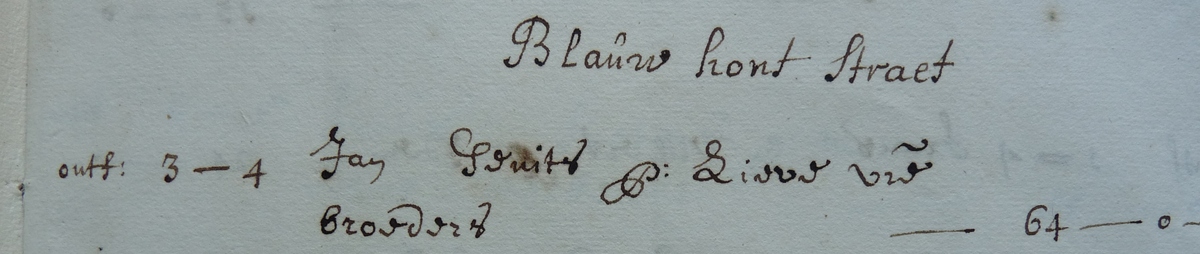 Blaûw hont Straet
outf: 3 – 4 Jan Gevits p: Lieve vrē
broeders — 64 — 0 –